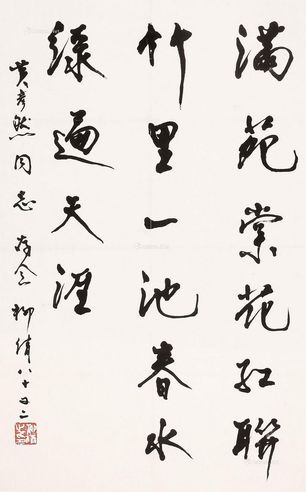 满苑棠花红联
竹里一池春水
绿遍天涯
黄彦然同志存念 柳倩八十又二